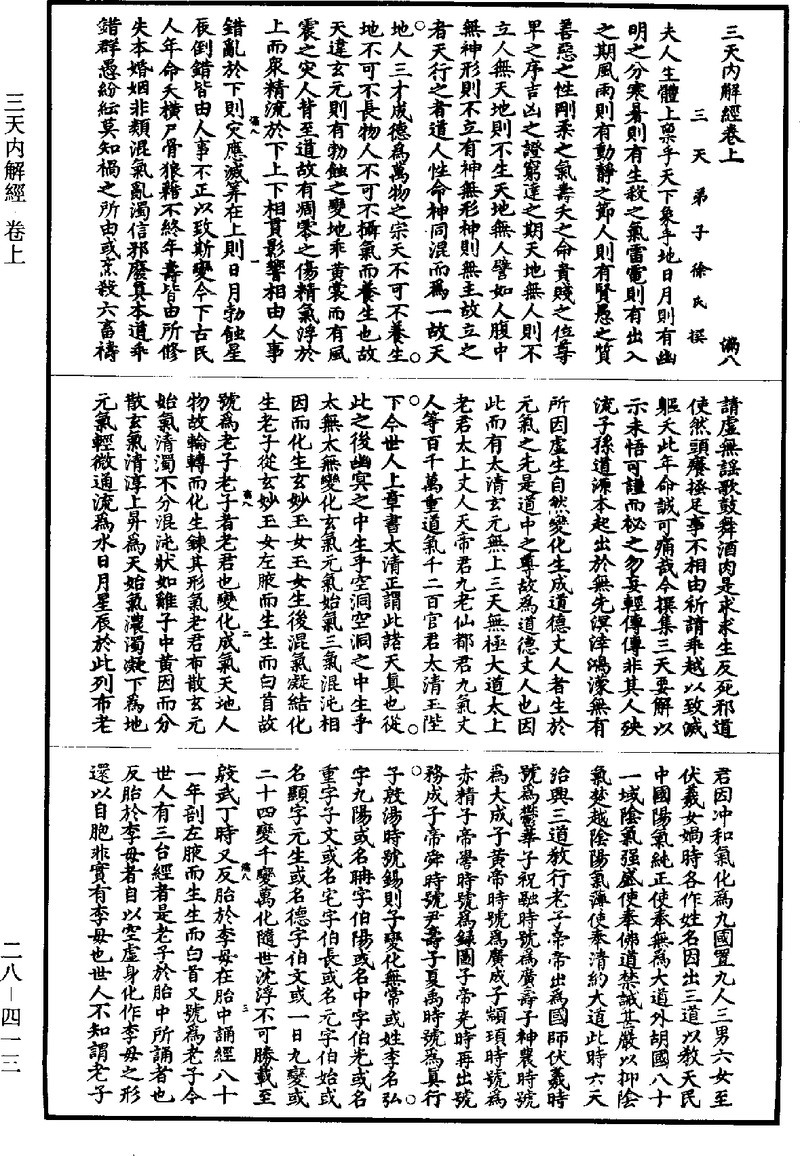 三天内解經 卷上
二八－四一三
三天内解經卷上
滿八
三天弟子徐氏撰
夫人生體上稟乎天下象乎地日月則有幽
明之分寒暑則有生殺之氣雷電則有出入
之期風雨則有動靜之節人則有賢愚之質
善惡之性剛柔之氣壽夭之命貴賤之位尊
卑之序吉凶之證窮達之期天地無人則不
立人無天地則不生天地無人譬如人腹中
無神形則不立有神無形神則無主故立之
者天行之者道人性命神同混而為一故天
地人三才成德為萬物之宗天不可不養生
地不可不長物人不可不攝氣而養生也故
天違玄元則有勃蝕之變地乖黃裳而有風
震之災人背至道故有凋零之傷精氣浮於
上而衆精流於下上下相貫影響相由人事
滿八
一
錯亂於下則灾應減筭在上則日月勃蝕星
辰倒錯皆由人事不正以致斯變今下古民
人年命夭橫尸骨狼藉不終年壽皆由所修
失本婚姻非類混氣亂濁信邪廢真本道乖
錯群愚紛紜莫知禍之所由或烹殺六畜禱
請虛無謡歌鼓舞酒肉是求求生反死邪道
使然頭癢搔足事不相由祈請乖越以致滅
軀夭此年命誠可痛哉今撰集三天要解以
示未悟可謹而祕之勿妄輕傳傳非其人殃
流子孫道源本起出於無先溟涬鴻濛無有
所因虛生自然變化生成道德丈人者生於
元氣之先是道中之尊故為道德丈人也因
此而有太清玄元無上三天無極大道太上
老君太上丈人天帝君九老仙都君九氣丈
人等百千萬重道氣千二百官君太清玉陛
下今世人上章書太清正謂此諸天真也從
此之後幽冥之中生乎空洞空洞之中生乎
太無太無變化玄氣元氣始氣三氣混沌相
因而化生玄妙玉女玉女生後混氣凝結化
生老子從玄妙玉女左腋而生生而白首故
滿八
二
號為老子老子者老君也變化成氣天地人
物故輪轉而化生鍊其形氣老君布散玄元
始氣清濁不分混沌狀如雞子中黃因而分
散玄氣清淳上昇為天始氣濃濁凝下為地
元氣輕微通流為水日月星辰於此列布老
君因冲和氣化為九國置九人三男六女至
伏羲女媧時各作姓名因出三道以教天民
中國陽氣純正使奉無為大道外胡國八十
一域陰氣强盛使奉佛道禁誡甚嚴以抑陰
氣楚越陰陽氣薄使奉清約大道此時六天
治興三道教行老子帝帝出為國師伏羲時
號為鬱華子祝融時號為廣壽子神農時號
為大成子黃帝時號為廣成子顓頊時號為
赤精子帝嚳時號為録圖子帝堯時再出號
務成子帝舜時號尹壽子夏禹時號為真行
子殷湯時號錫則子變化無常或姓李名弘
字九陽或名聃字伯陽或名中字伯光或名
重字子文或名宅字伯長或名元字伯始或
名顯字元生或名德字伯文或一日九變或
二十四變千變萬化隨世沈浮不可勝載至
滿八
三
殷武丁時又反胎於李母在胎中誦經八十
一年剖左腋而生生而白首又號為老子今
世人有三台經者是老子於胎中所誦者也
反胎於李母者自以空虛身化作李母之形
還以自胞非實有李母也世人不知謂老子